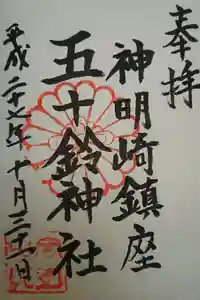 奉拝
神明崎鎮座
五十鈴神社
平成二十七年十月三十一日